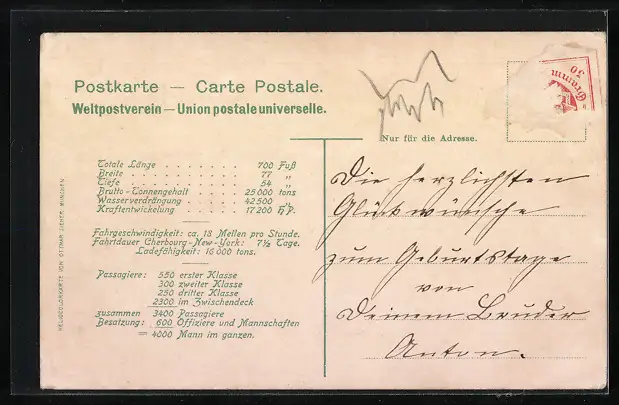 Postkarte — Carte Postale.
Weltpostverein — Union postale universelle.
Nur für die Adresse.
Totale Länge . . . . . . . 700 Fuß
Breite . . . . . . . . . . 77 „
Tiefe . . . . . . . . . . 54 „
Brutto-Tonnengehalt . . . 25000 tons
Wasserverdrängung . . . . 42500 „
Kraftentwickelung . . . . 17200 H P.
Fahrgeschwindigkeit: ca. 18 Meilen pro Stunde.
Fahrtdauer Cherbourg-New-York: 7½ Tage.
Ladefähigkeit: 16000 tons.
Passagiere: 550 erster Klasse
300 zweiter Klasse
250 dritter Klasse
2300 im Zwischendeck
zusammen 3400 Passagiere
Besatzung: 600 Offiziere und Mannschaften
= 4000 Mann im ganzen.
HELIOCOLORKARTE VON OTTMAR ZIEHER, MÜNCHEN
Die herzlichsten
Glückwünsche
zum Geburtstage
von
Deinem Bruder
Anton.
Gramm
30